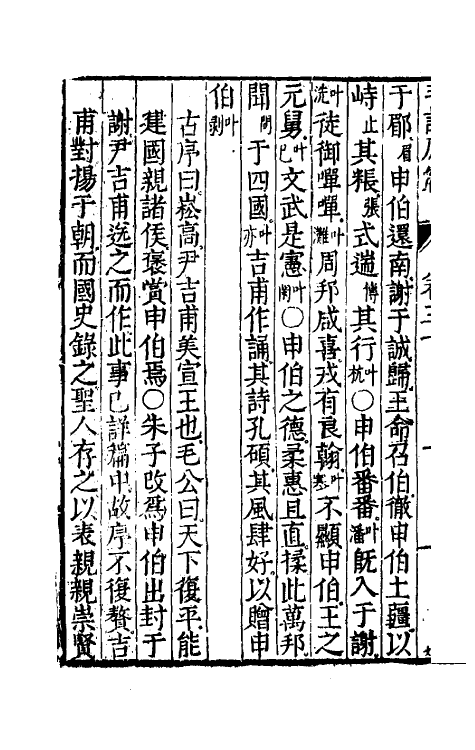 于郿眉申伯還南謝于誠歸王命召伯徹申伯土疆以
峙止其粻張式遄傳其行叶杭〇申伯番番叶潘旣入于謝
叶洗徒御嘽嘽叶灘周邦咸喜戎有良翰叶寒不顯申伯王之
元舅叶已文武是憲叶闌〇申伯之德柔惠且直揉此萬邦
聞問于四國叶亦吉甫作誦其詩孔碩其風肆好以贈申
伯叶剥
古序曰崧高尹吉甫美宣王也毛公曰天下復平能
建國親諸侯褒賞申伯焉〇朱子改爲申伯出封于
謝尹吉甫送之而作此事已詳編中故序不復贅吉
甫對揚于朝而國史錄之聖人存之以表親親崇賢